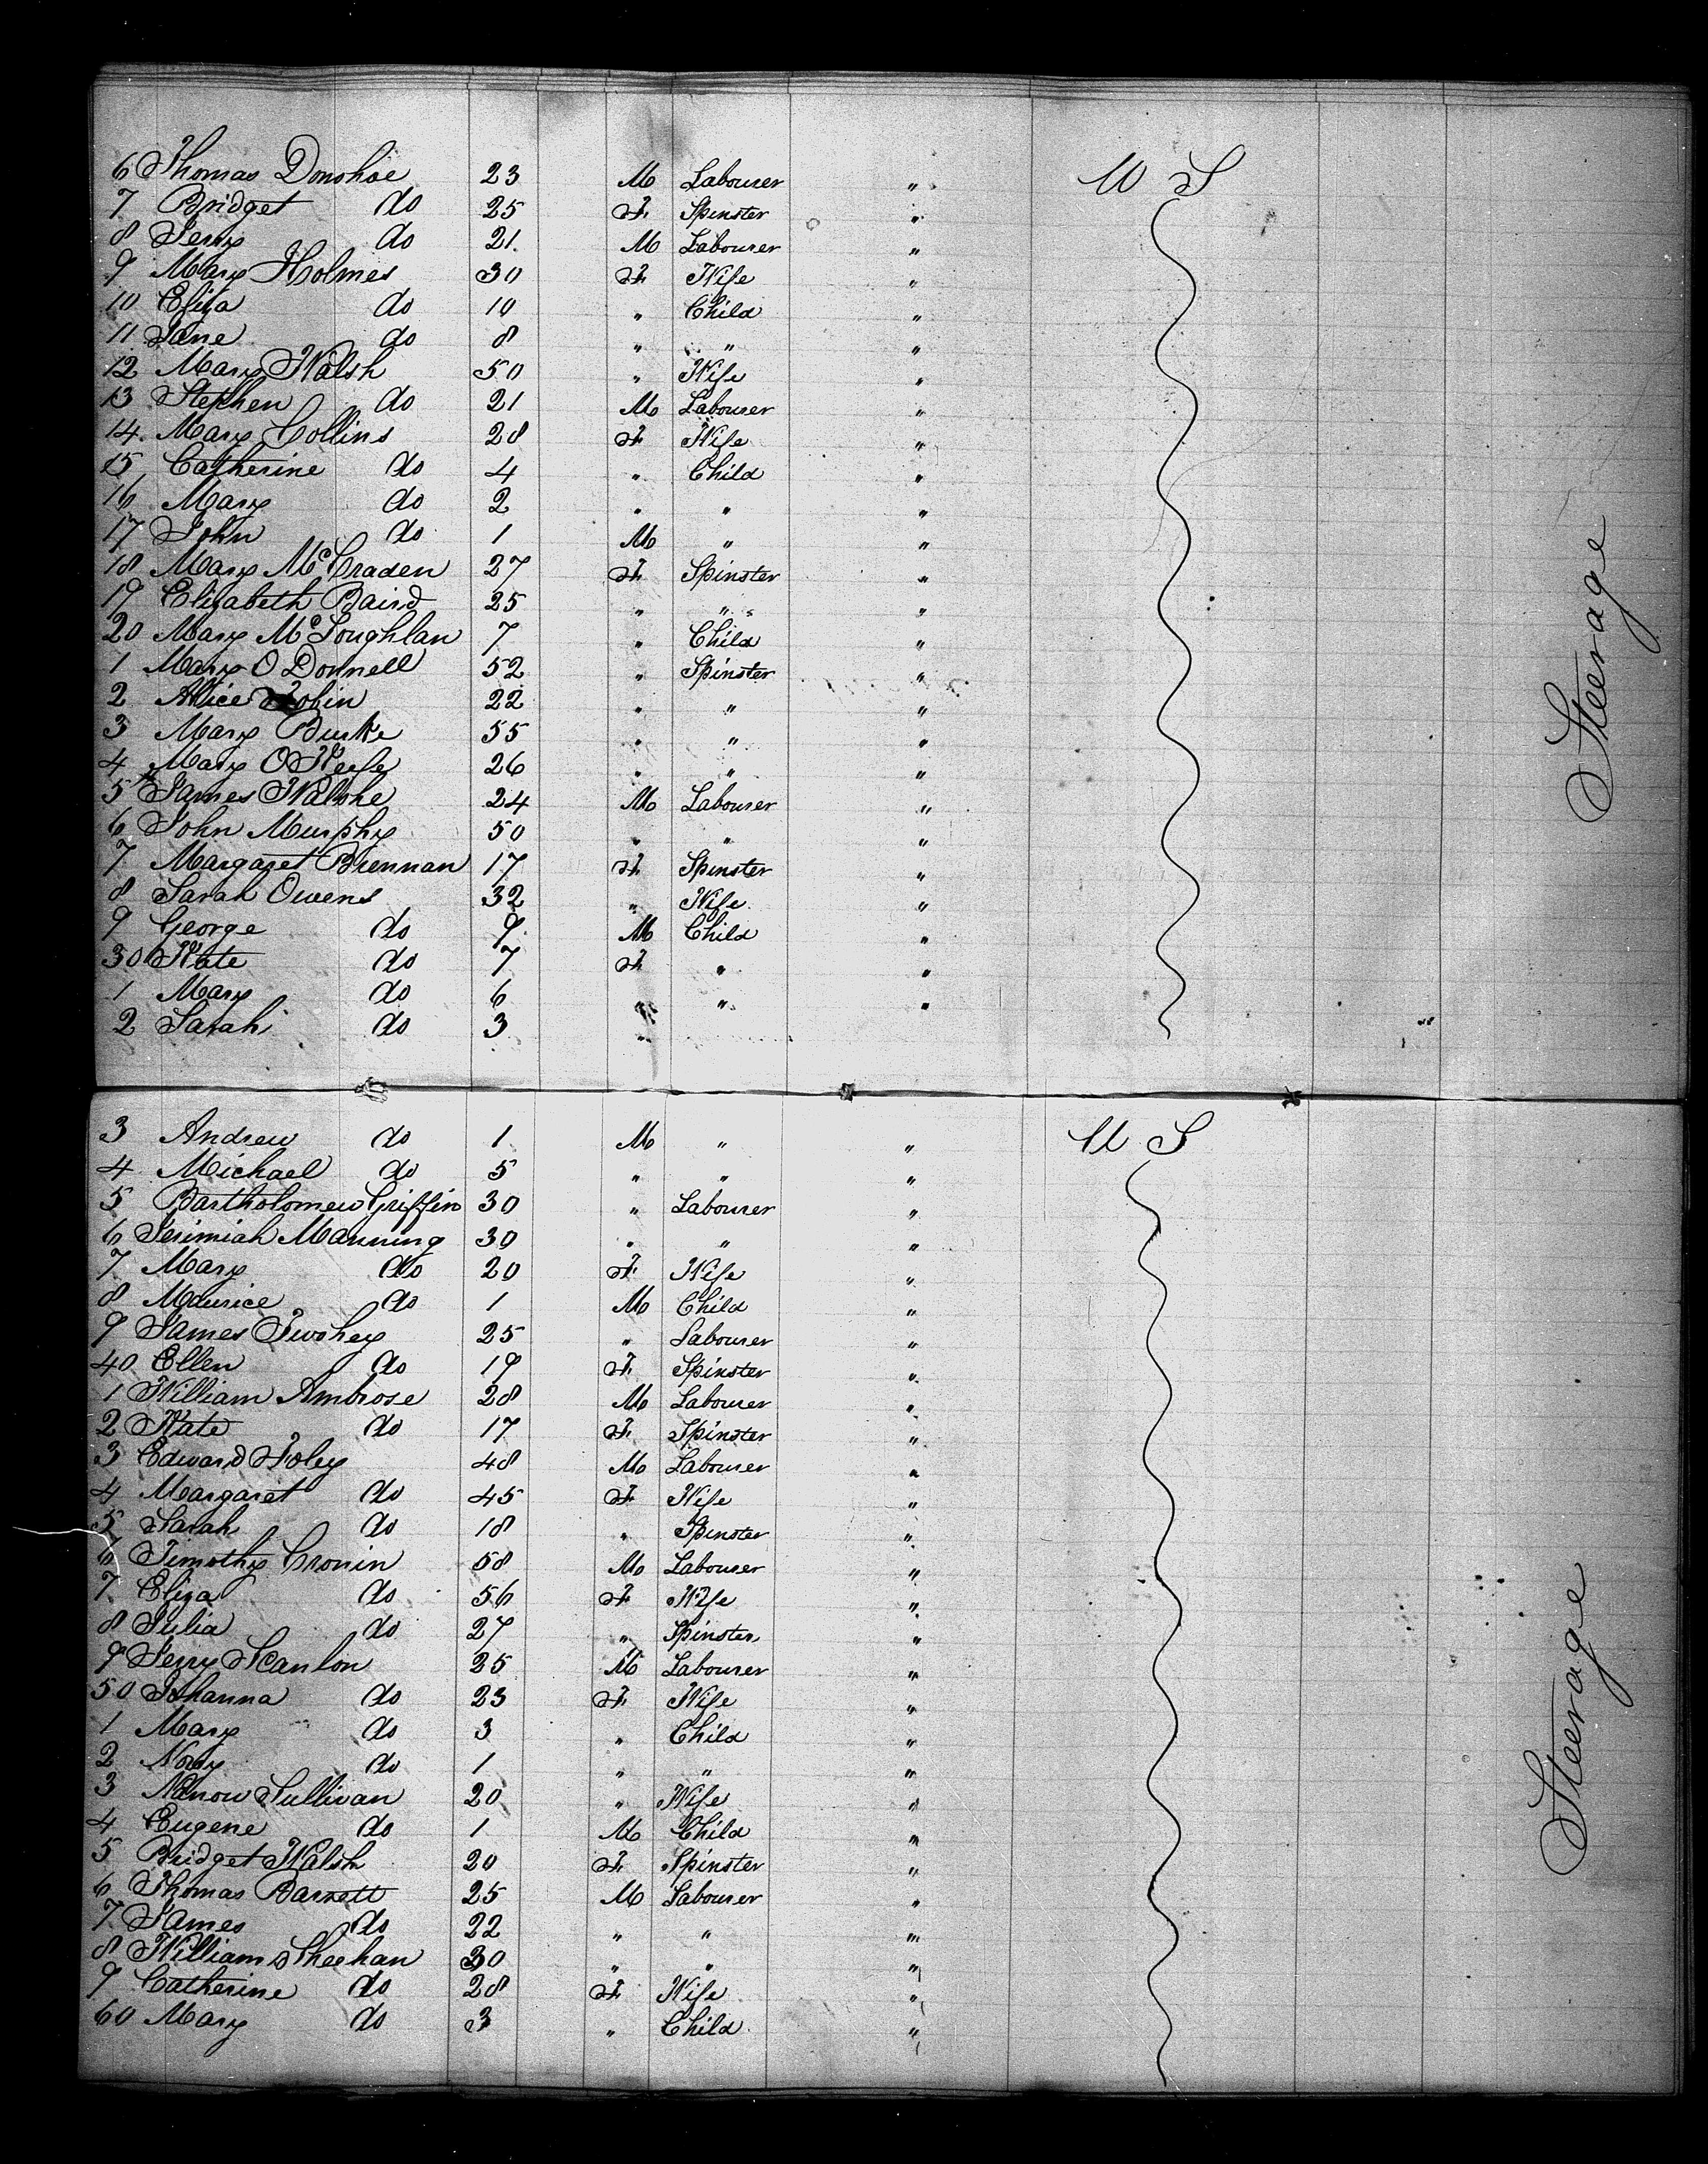 6 Thomas Donohoe 23 M Labourer " U S
7 Bridget do 25 F. Spinster "
8 Jerry do 21. M Labourer "
9 Mary Holmes 30 F. Wife "
10 Eliza do 10 " Child "
11 Jane do 8 " " "
12 Mary Walsh 50 " Wife "
13 Stephen do 21 M Labourer "
14. Mary Collins 28 F. Wife "
15 Catherine do 4 " Child "
16 Mary do 2 " " "
17 John do 1 M " "
18 Mary McCraden 27 F. Spinster "
19 Elizabeth Baird 25 " " "
20 Mary McLoughlan 7 " Child "
1 Mary O Donnell 52 " Spinster "
2 Allice Tobin 22 " " "
3 Mary Burke 55 " " "
4 Mary O Keefe 26 " " "
5 James Walshe 24 M Labourer "
6 John Murphy 50 " " "
7 Margaret Brennan 17 F. Spinster "
8 Sarah Owens 32 " Wife "
9 George do 9 M Child "
30 Kate do 7 F. " "
1 Mary do 6 " " "
2 Sarah do 3 "
Steerage
3 Andrew do 1 M " " U S
4 Michael do 5 " " "
5 Bartholomew Griffin 30 " Labourer "
6 Jerimiah Manning 30 " " "
7 Mary do 20 F. Wife "
8 Maurice do 1 M Child "
9 James Twohey 25 " Labourer "
40 Ellen do 19 F. Spinster "
1 William Ambrose 28 M Labourer "
2 Kate do 17 F. Spinster "
3 Edward Foley 48 M Labourer "
4 Margaret do 45 F. Wife "
5 Sarah do 18 " Spinster "
6 Timothy Cronin 58 M Labourer "
7 Eliza do 56 F. Wife "
8 Julia do 27 " Spinster "
9 Jerry Scanlon 25 M Labourer "
50 Johanna do 23 F. Wife "
1 Mary do 3 " Child "
2 Nory do 1 " " "
3 Sullivan 20 " Wife "
4 Eugene do 1 M Child "
5 Bridget Walsh 20 F. Spinster "
6 Thomas Barrett 25 M Labourer "
7 James do 22 " " "
8 William Sheehan 30 " " "
9 Catherine do 28 F. Wife "
60 Mary do 3 " Child "
Steerage